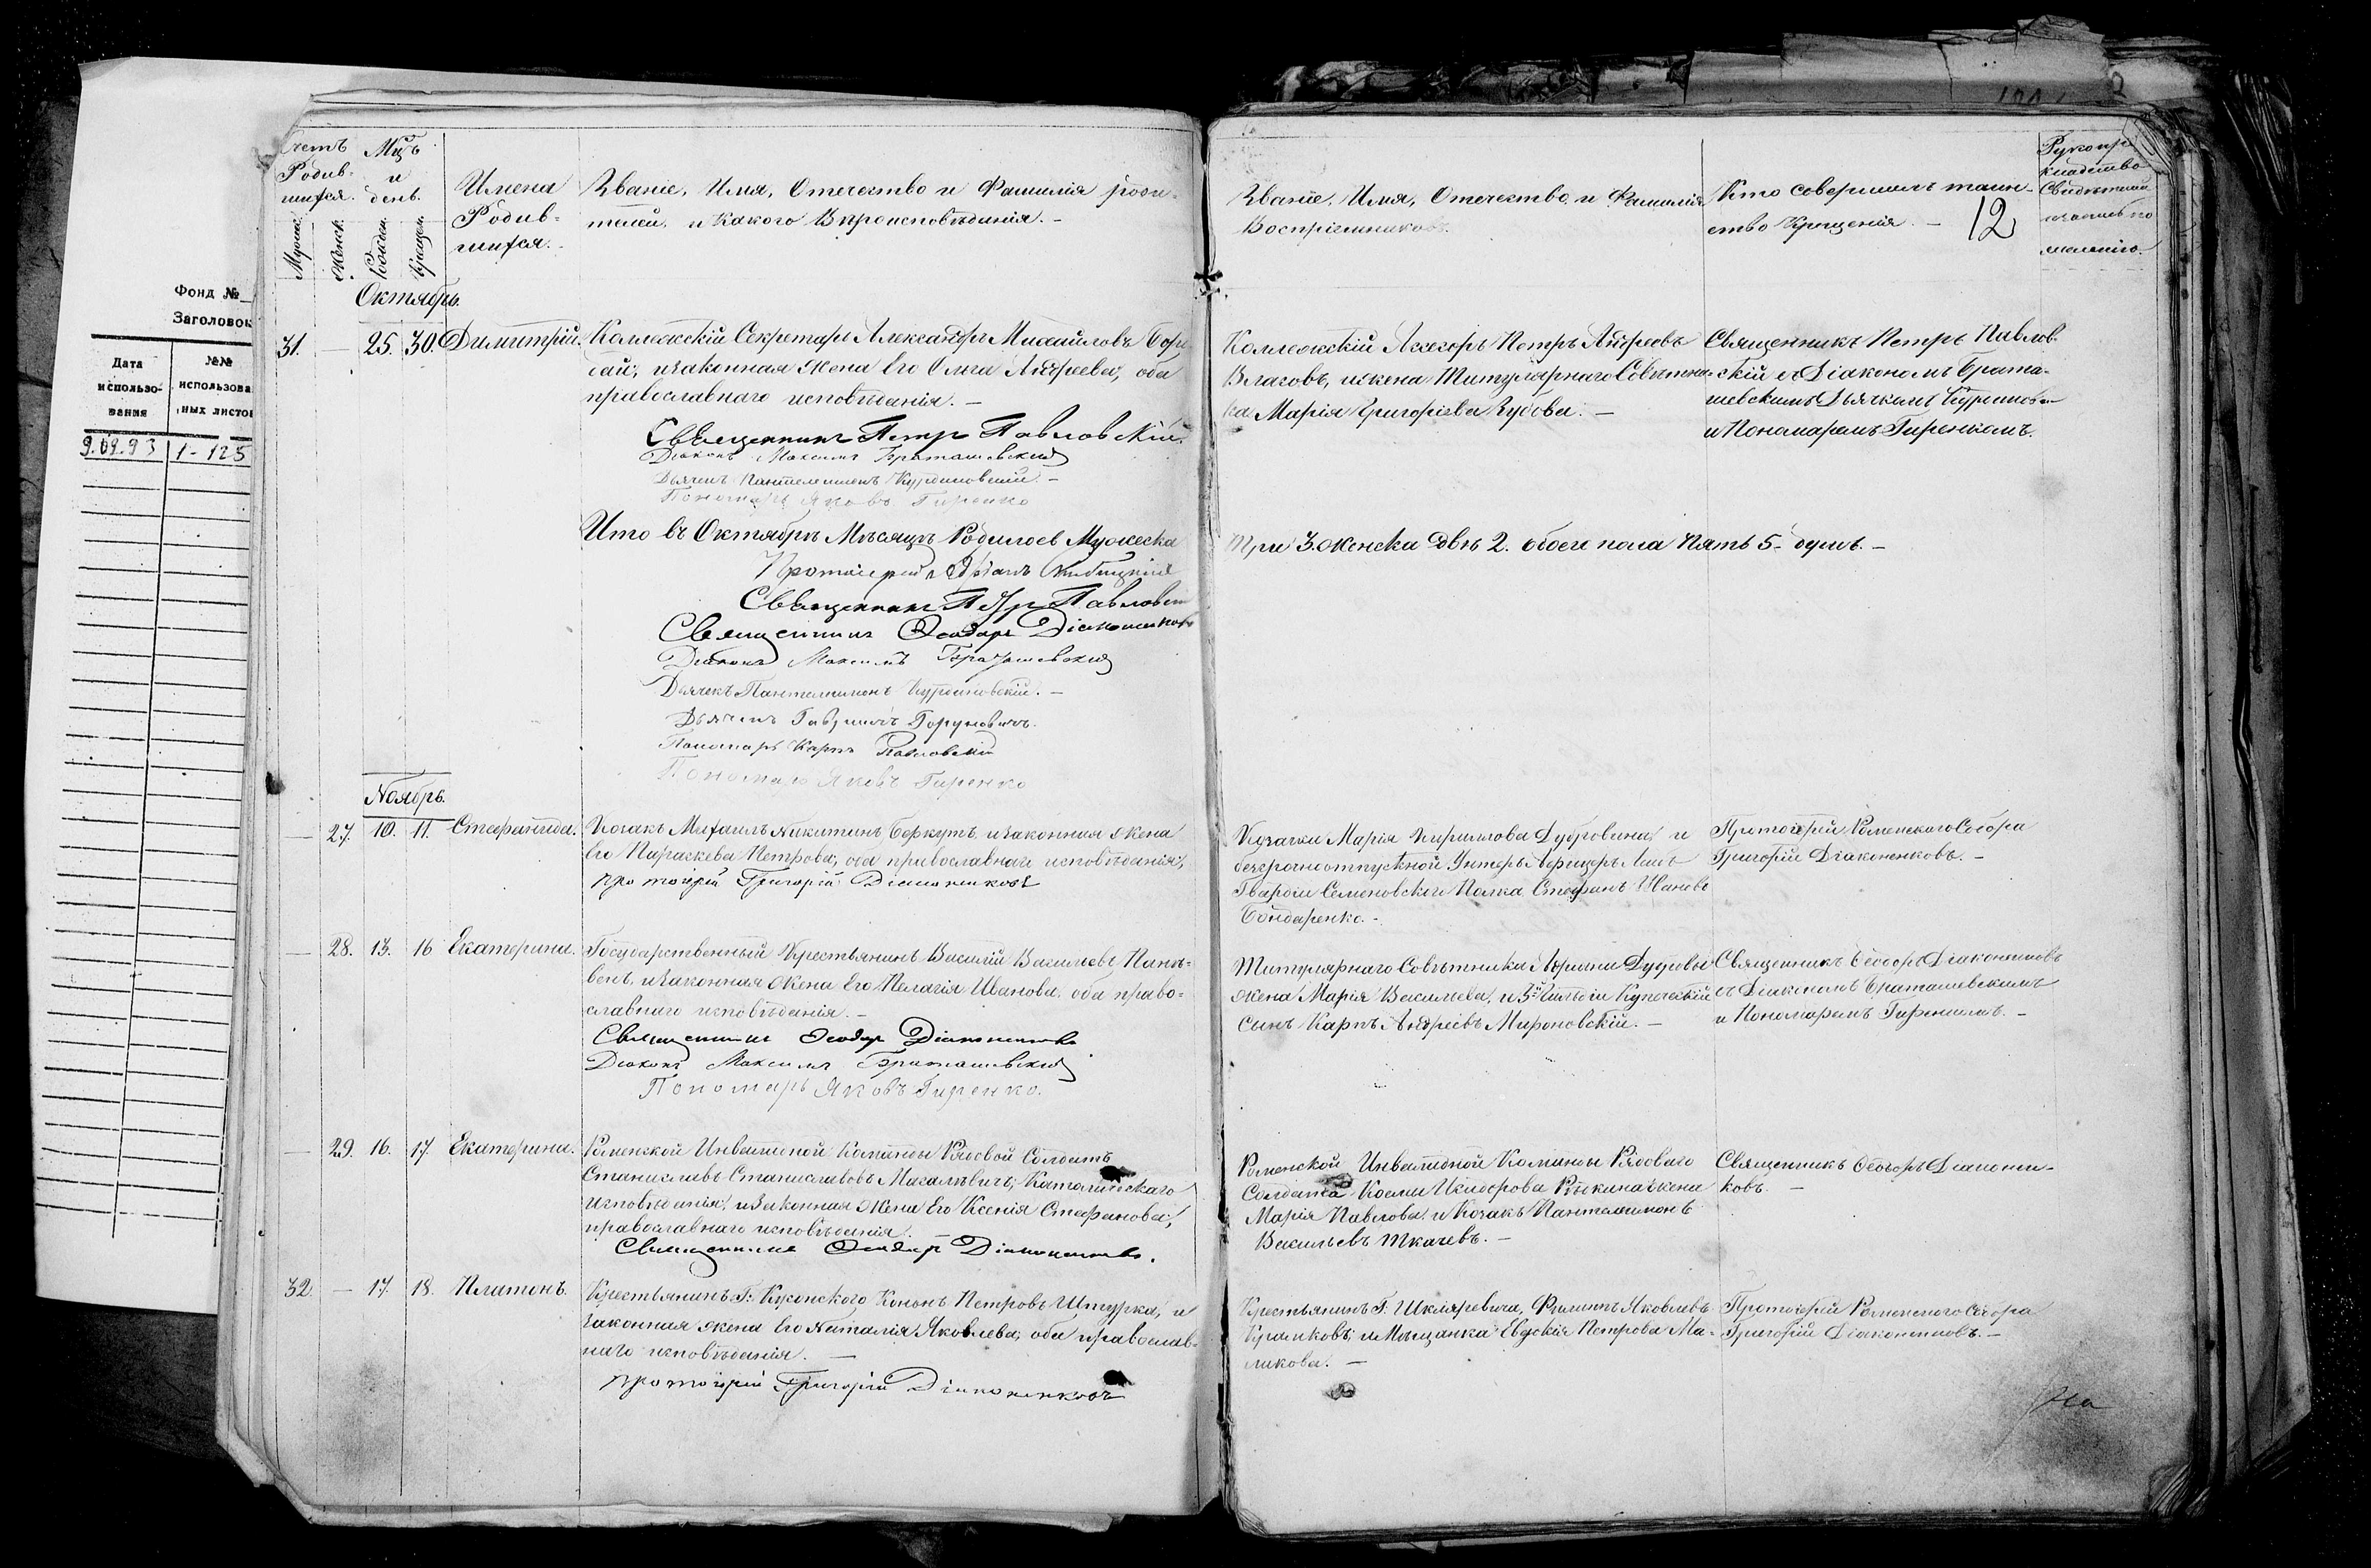 Фонд №
Заголовок
Дата использо- вания
№№ использова ных листов
9.09.93 1-125
Счетъ Родив- шихся.
Мцъ и день.
Имена Родив- шихся.
Званіе, Имя, Отечество и Фамилія роди-
телей, и какого Вѣроисповѣданія. —
Мужес. Женск. Рожден. Крещен.
Октябрь.
31. — 25. 30. Димитрій.
Коллежскій Секретарь Александръ Михайловъ
сай, и законная жена Его Ольга Андреева, оба
православнаго исповѣданія. —
Священникъ Петръ Павловскій.
Діаконъ Максимъ Браташевскій
Дьячекъ Пантелеимонъ Курдиновскій. —
Пономарь Яковъ Гиренко
Что въ Октябрѣ Мѣсяцѣ Родилось Мужеска
Протоіерей
Священникъ Петръ Павловскій
Священникъ Ѳеодоръ Діаконенковъ
Діаконъ Максимъ Браташевскій
Дьячекъ Пантелеимонъ Курдиновскій. —
Дьячекъ Гавріилъ Горуновичъ.
Пономарь Карпъ Павловскій
Пономарь Яковъ Гиренко
Ноябрь.
— 27. 10. 11. Стефанида.
Козакъ Михаилъ Никитинъ Беркутъ, и законная жена
Его Параскева Петрова, оба православнаго исповѣданія,
протоіерей Григорій Діаконенковъ
— 28. 13. 16 Екатерина.
Государственный Крестьянинъ Василій Васильевъ Панъ-
вень, и законная жена Его Пелагія Иванова, оба право-
славнаго исповѣданія. —
Священникъ Ѳеодоръ Діаконенковъ
Діаконъ Максимъ Браташевскій
Пономарь Яковъ Гиренко.
— 29. 16. 17. Екатерина.
Роменской Инвалидной Команды Рядовой Солдатъ
Станиславъ Станиславовъ Михалѣвичъ, Католическаго
Исповѣданія, и Законная Жена Его Ксенія Стефанова,
православнаго исповѣданія. —
Священникъ Ѳеодоръ Діаконенковъ.
32. — 17. 18. Платонъ.
Крестьянинъ Г: Кусонского Кононъ Петровъ Штурка, и
законная жена Его Наталія Яковлева, оба православ-
наго исповѣданія. —
протоіерей Григорій Діаконенковъ
Званіе, Имя, Отечество, и Фамилія
Воспріемниковъ.
Кто совершилъ таин-
ство Крещенія. —
12
Рукопри-
кладство
Свидѣтелей
по
желанію.
Коллежскій Асесоръ Петръ Андреевъ
Власовъ, и жена Титулярнаго Совѣтни-
ка Марія Григоріева Зубова. —
Священникъ Петръ Павлов-
скій съ Діакономъ Брата-
шевскимъ Дьячкомъ Курдинов-
и Пономаремъ Гиренкомъ.
три 3. женска двѣ 2. обоего пола пять 5. душъ. —
Козачки Марія Кириллова Дубровина и
безсрочно отпускной Унтеръ Афицеръ Лейбъ
Гвардіи Семеновского Полка Стефанъ Ивановъ
Бондаренко. —
Протоіерей Роменского Собора
Григорій Діаконенковъ. —
Титулярнаго Совѣтника
жена Марія Васильева, и 3й Гильдіи Купеческій
сынъ Карпъ Андреевъ Мироновскій. —
Священникъ Ѳеодоръ Діаконенковъ
съ Діакономъ Браташевскимъ
и Пономаремъ Гиренкомъ. —
Роменской Инвалидной Команды Рядоваго
Солдата Косми Исидорова жена
Марія Павлова и Козакъ Пантелимонъ
Васильевъ Ткачевъ. —
Священникъ Ѳеодоръ Діаконен-
ковъ. —
Крестьянинъ Г: Шкляревича, Филипъ Яковлевъ
и Мѣщанка Евдокія Петрова Ма-
ликова. —
Протоіерей Роменского Собора
Григорій Діаконенковъ. —